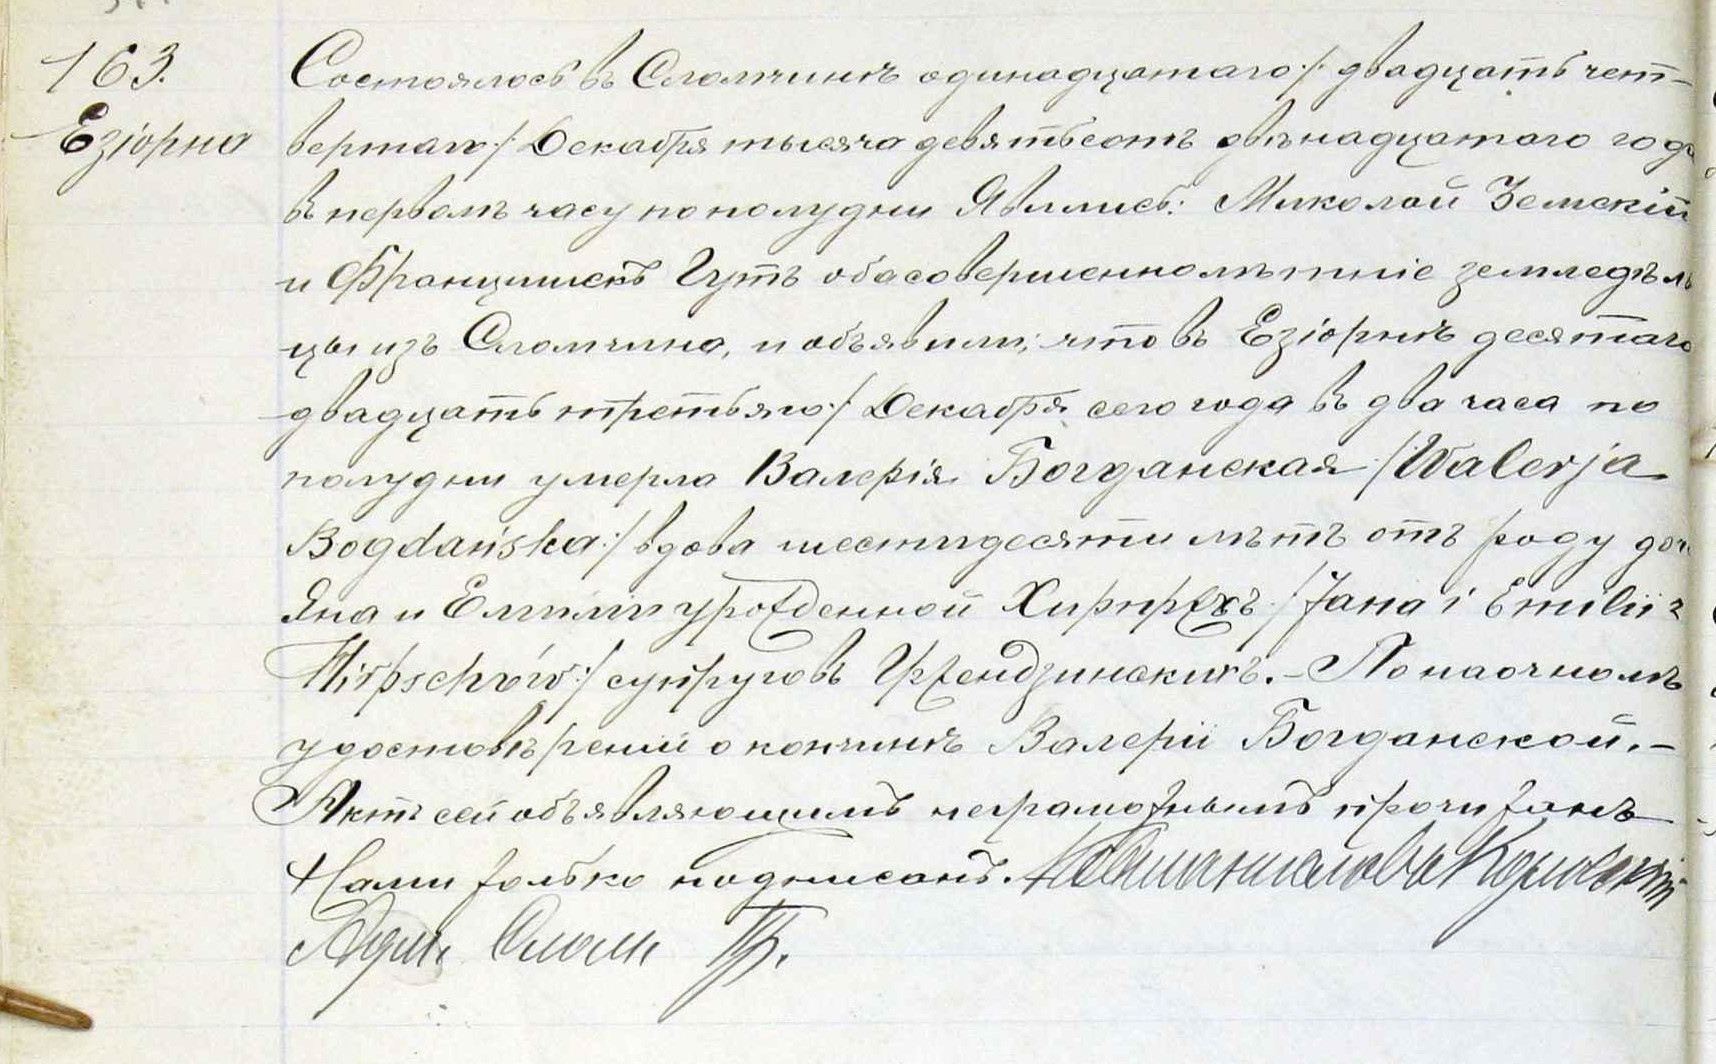 163.
Езiорна
Состоялось въ Сломчинѣ одинадцатаго /: двадцать чет-
вертаго :/ Декабря тысяча девятьсотъ двѣнадцатаго года
въ первомъ часу по полудни Явились: Миколай Земскiй
и Францишекъ Гутъ оба совершеннолѣтнiе земледѣль
цы изъ Сломчина, и объявили, что въ Езiорнѣ десятаго
двадцать третьяго :/ Декабря сего года въ два часа по
полудни умерла Валерiя Богданская /: Walerja
Bogdańska :/ вдова шестидесяти лѣтъ отъ роду дочь
Яна и Емилiи урожденной /: Jana i Emilii z
Hirpschów :/ супруговъ По наочномъ
удостовѣренiи о кончинѣ Валерiи Богданской. –
Актъ сей объявляющимъ неграмотнымъ прочитанъ
Нами только подписанъ.